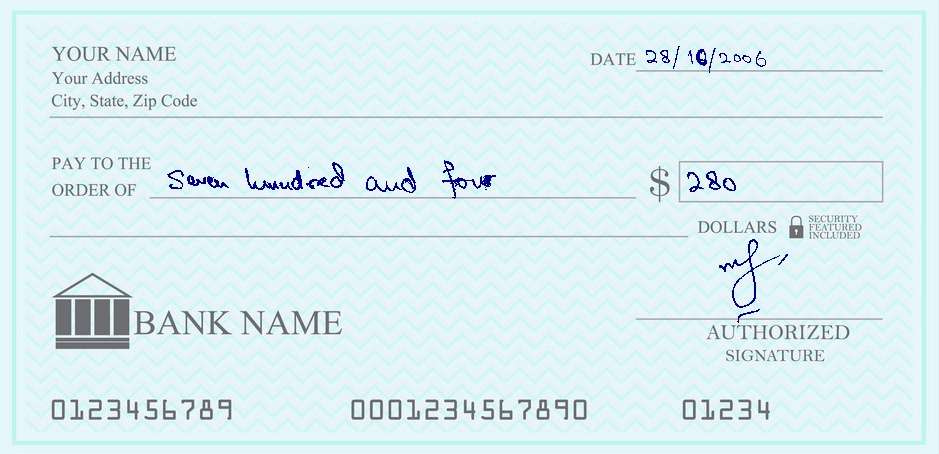 YOUR NAME
Your Address
City, State, Zip Code
DATE 28/10/2006
PAY TO THE
ORDER OF Seven hundred and four $ 280
DOLLARS SECURITY
FEATURED
INCLUDED
BANK NAME
AUTHORIZED
SIGNATURE
0123456789 0001234567890 01234